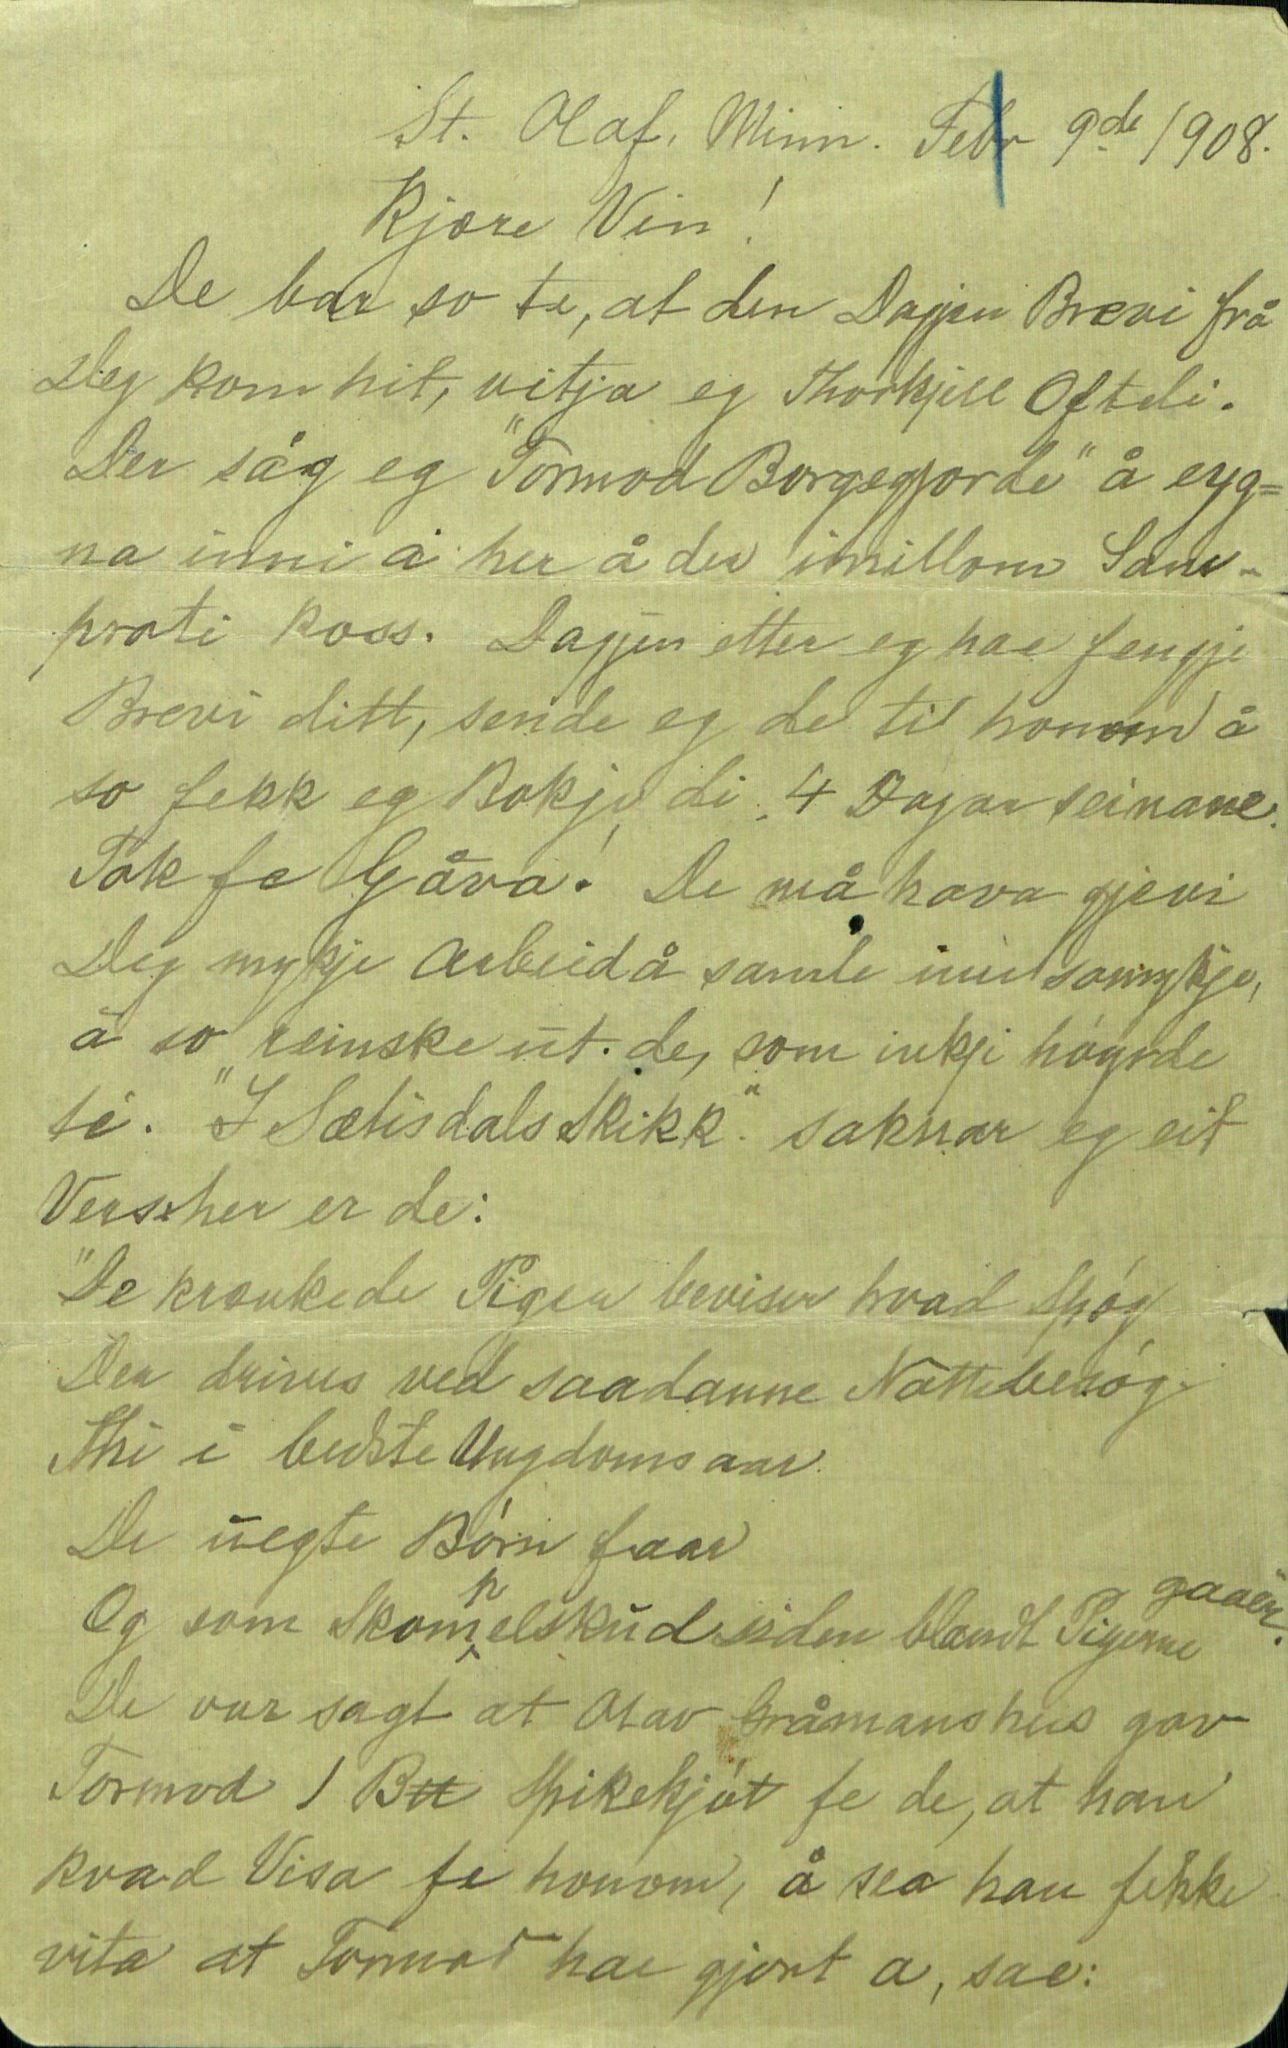 St. Olaf. Minn. Febr 9de 1908.
Kjære Vin!
De bar so te, at den Dagjen Brevi frå
Deg kom hit, vitja eg Thorkjell Ofteli.
Der såg eg "Tormod Borgegjorde" å eyg=
na inni å her å der imillom Sam-
prati koss. Dagjen etter eg hae fengje
Brevi ditt, sende eg de til honom å
so fekk eg Bokje di 4 Dagar seinare.
Tak fe Gåva! De må hava gjevi
Deg mykje Arbeid å samle inn so mykje,
å so reinske ut. de, som inkji høyrde
te. "I Sætisdals Skikk" saknar eg eit
Vers her er de:
"De krænkede Piger beviser hvad Spøg
Der drives ved saadanne Nattebesøg.
Thi i bedste Ungdomsaar
De uegte Børn faar
Og som Skompelskud siden blandt Pigerne gaaer.
De var sagt at Olav Gråmanshus gav
Tormod 1 Btt Spikekjøt fe de, at han
kvad Visa fe honom, å sea han fekke
vita at Tormod hae gjort a, sae: